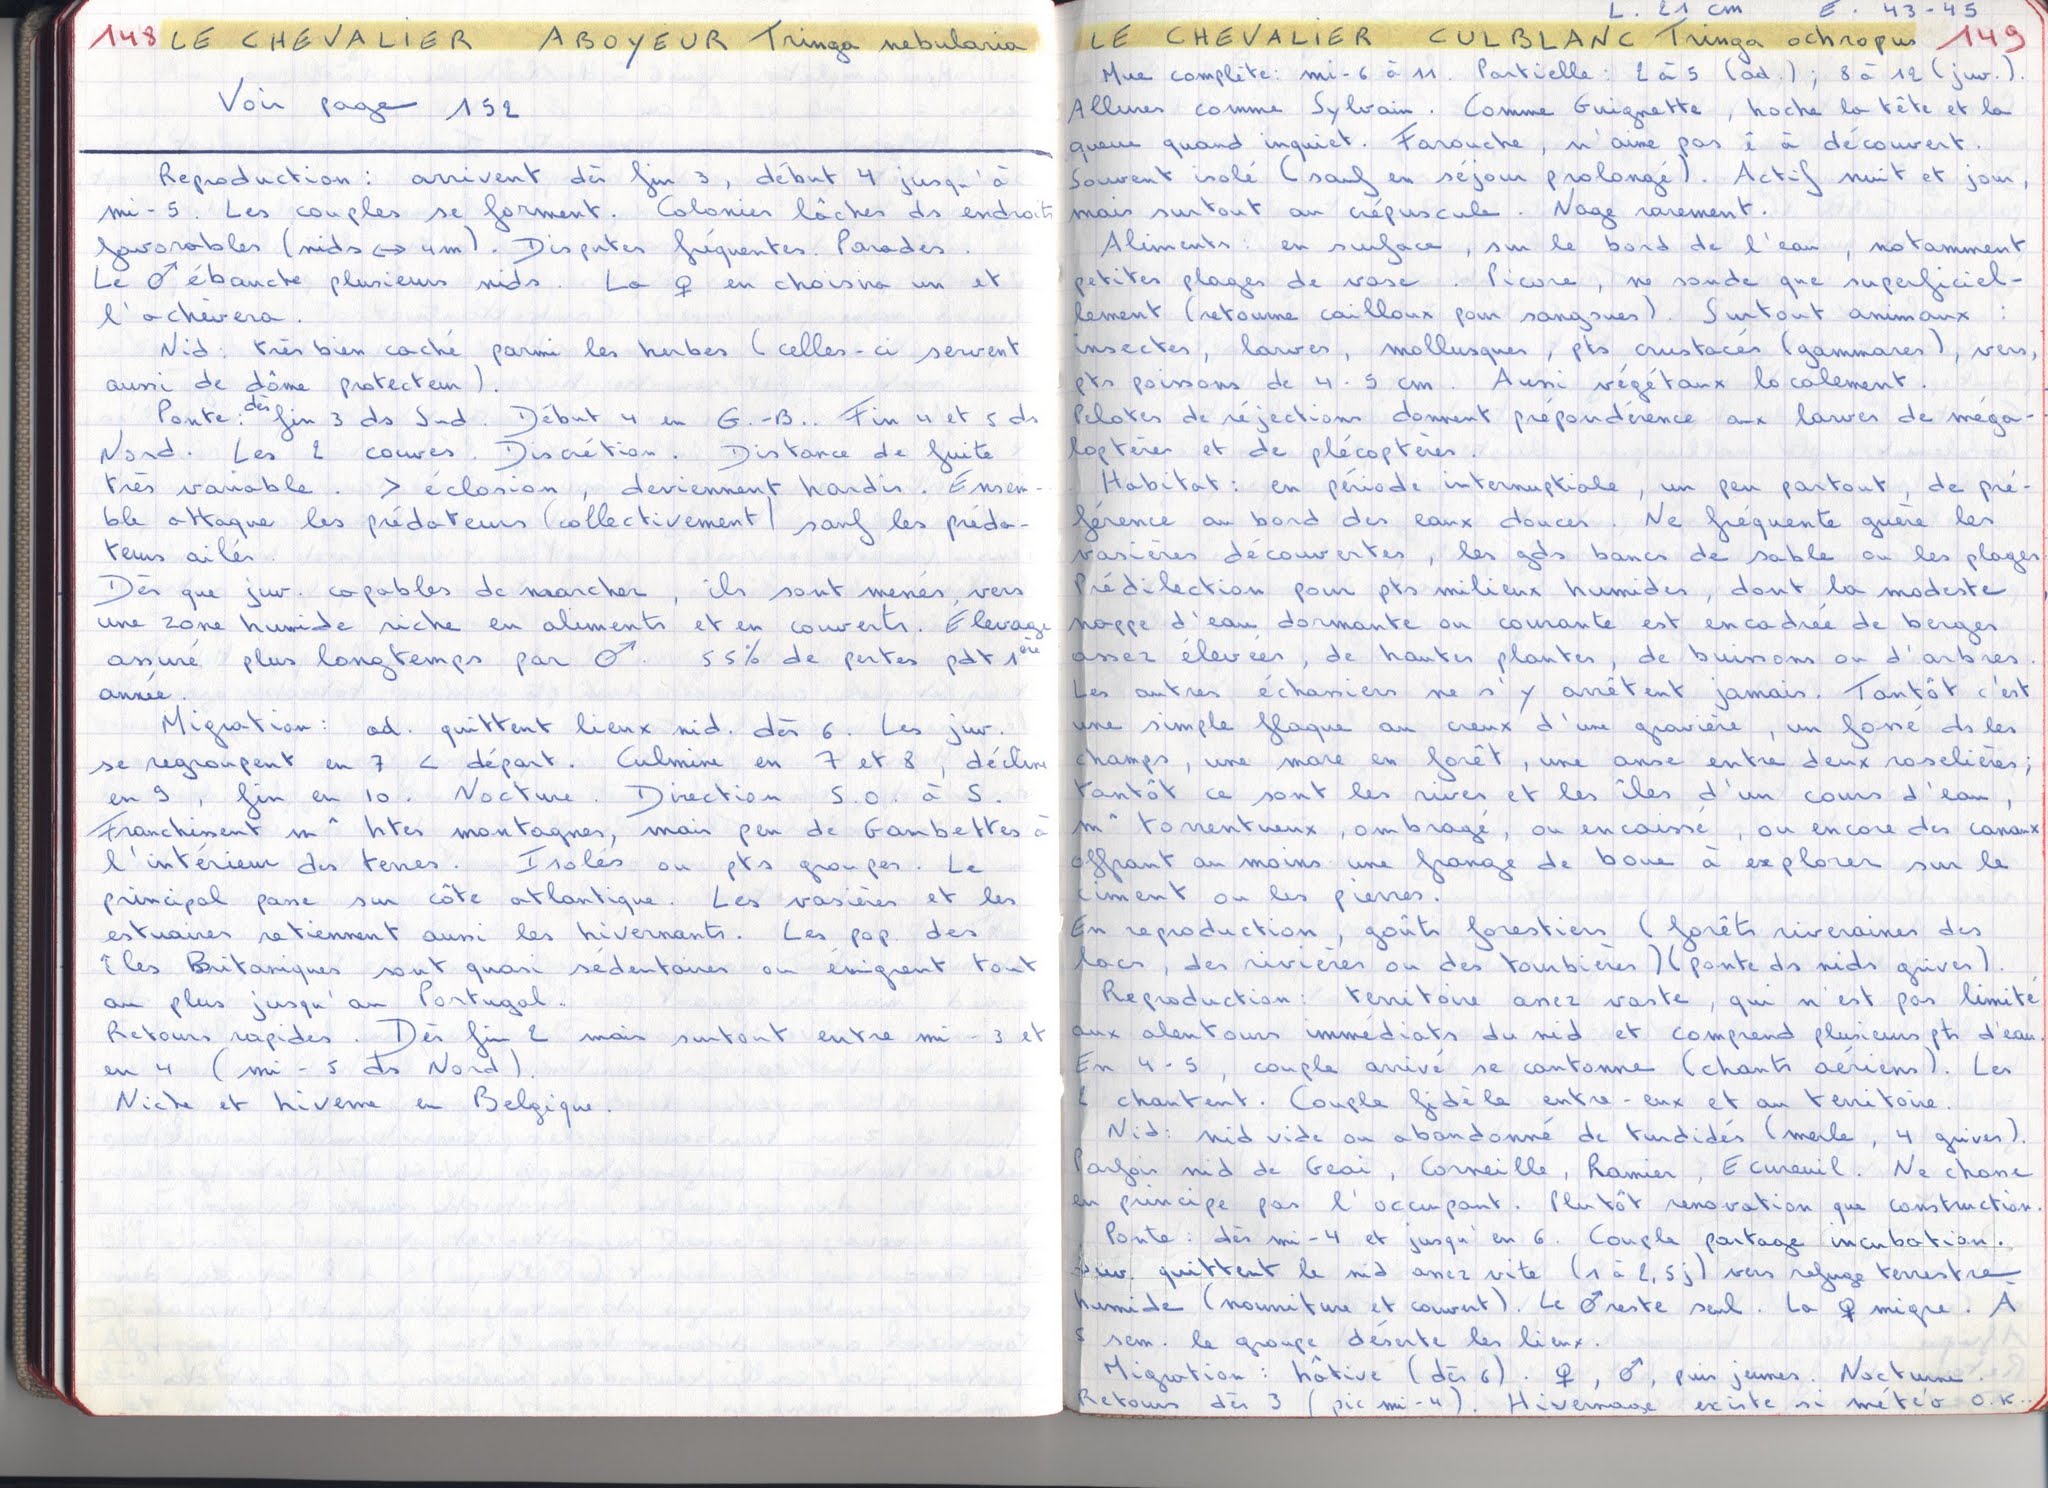 148 LE CHEVALIER ABOYEUR Tringa nebularia
Voir page 152
Reproduction : arrivent dès fin 3, début 4 jusqu'à
mi-5. Les couples se forment. Colonies lâches ds endroits
favorables (nids <-> 4m). Disputes fréquentes. Parades.
Le ♂ ébauche plusieurs nids. La ♀ en choisira un et
l'achèvera.
Nid : très bien caché parmi les herbes (celles-ci servent
aussi de dôme protecteur).
Ponte : dès fin 3 ds Sud. Début 4 en G.-B.. Fin 4 et 5 ds
Nord. Les 2 couves. Discrétion. Distance de fuite
très variable. > éclosion, deviennent hardis. Ensem-
ble attaque les prédateurs (collectivement) sauf les préda-
teurs ailés.
Dès que juv. capables de marcher, ils sont menés vers
une zone humide riche en aliments et en couverts. Elevage
assuré plus longtemps par ♂. 55% de pertes pdt 1ère
année.
Migration : ad. quittent lieux nid. dès 6. Les juv.
se regroupent en 7 < départ. Culmine en 7 et 8, décline
en 9, fin en 10. Nocture. Direction S.O. à S.
Franchissent m^ htes montagnes, mais peu de Gambettes à
l'intérieur des terres. Isolés ou pts groupes. Le
principal passe sur côte atlantique. Les vasières et les
estuaires retiennent aussi les hivernants. Les pop. des
îles Britaniques sont quasi sédentaires ou émigrent tout
au plus jusqu'au Portugal.
Retours rapides. Dès fin 2 mais surtout entre mi-3 et
en 4 (mi-5 ds Nord).
Niche et hiverne en Belgique.
L. 21 cm E. 43-45
LE CHEVALIER CULBLANC Tringa ochropus 149
Mue complète : mi-6 à 11. Partielle : 2 à 5 (ad.) ; 8 à 12 (juv.).
Allures comme Sylvain. Comme Guignette, hoche la tête et la
queue quand inquiet. Farouche, n'aime pas ê à découvert.
Souvent isolé (sauf en séjour prolongé). Actif nuit et jour,
mais surtout au crépuscule. Nage rarement.
Aliments : en surface, sur le bord de l'eau, notamment
petites plages de vase. Picore, ne sonde que superficiel-
lement (retourne cailloux pour sangsues). Surtout animaux :
insectes, larves, mollusques, pts crustacés (gammares), vers,
pts poissons de 4-5 cm. Aussi végétaux localement.
Pelotes de réjections donnent prépondérence aux larves de méga-
loptères et de plécoptères.
Habitat : en période internuptiale, un peu partout, de pré-
férence au bord des eaux douces. Ne fréquente guère les
vasières découvertes, les gds bancs de sable ou les plages
Prédilection pour pts milieux humides, dont la modeste
nappe d'eau dormante ou courante est encadrée de berges
assez élevées, de hautes plantes, de buissons ou d'arbres.
Les autres échassiers ne s'y arrêtent jamais. Tantôt c'est
une simple flaque au creux d'une gravière, un fossé ds les
champs, une mare en forêt, une anse entre deux roselières ;
tantôt ce sont les rives et les îles d'un cours d'eau,
m^ torrentueux, ombragé, ou encaissé, ou encore des canaux
offrant au moins une frange de boue à explorer sur le
ciment ou les pierres.
En reproduction, goûts forestiers (forêts riveraines des
lacs, des rivières ou des tourbières) (ponte ds nids grives).
Reproduction : territoire assez vaste, qui n'est pas limité
aux alentours immédiats du nid et comprend plusieurs pts d'eau.
En 4-5, couple arrivé se cantonne (chants aériens). Les
2 chantent. Couple fidèle entre-eux et au territoire.
Nid : nid vide ou abandonné de turdidés (merle, 4 grives).
Parfois nid de Geai, Corneille, Ramier, Ecureuil. Ne chasse
en principe pas l'occupant. Plutôt renovation que construction.
Ponte : dès mi-4 et jusqu'en 6. Couple partage incubation.
Juv. quittent le nid assez vite (1 à 2,5j) vers refuge terrestre
humide (nourriture et couvert). Le ♂ reste seul. La ♀ migre. À
5 sem. le groupe déserte les lieux.
Migration : hâtive (dès 6). ♀, ♂, puis jeunes. Nocturne.
Retours dès 3 (pic mi-4). Hivernage existe si météo O.K...